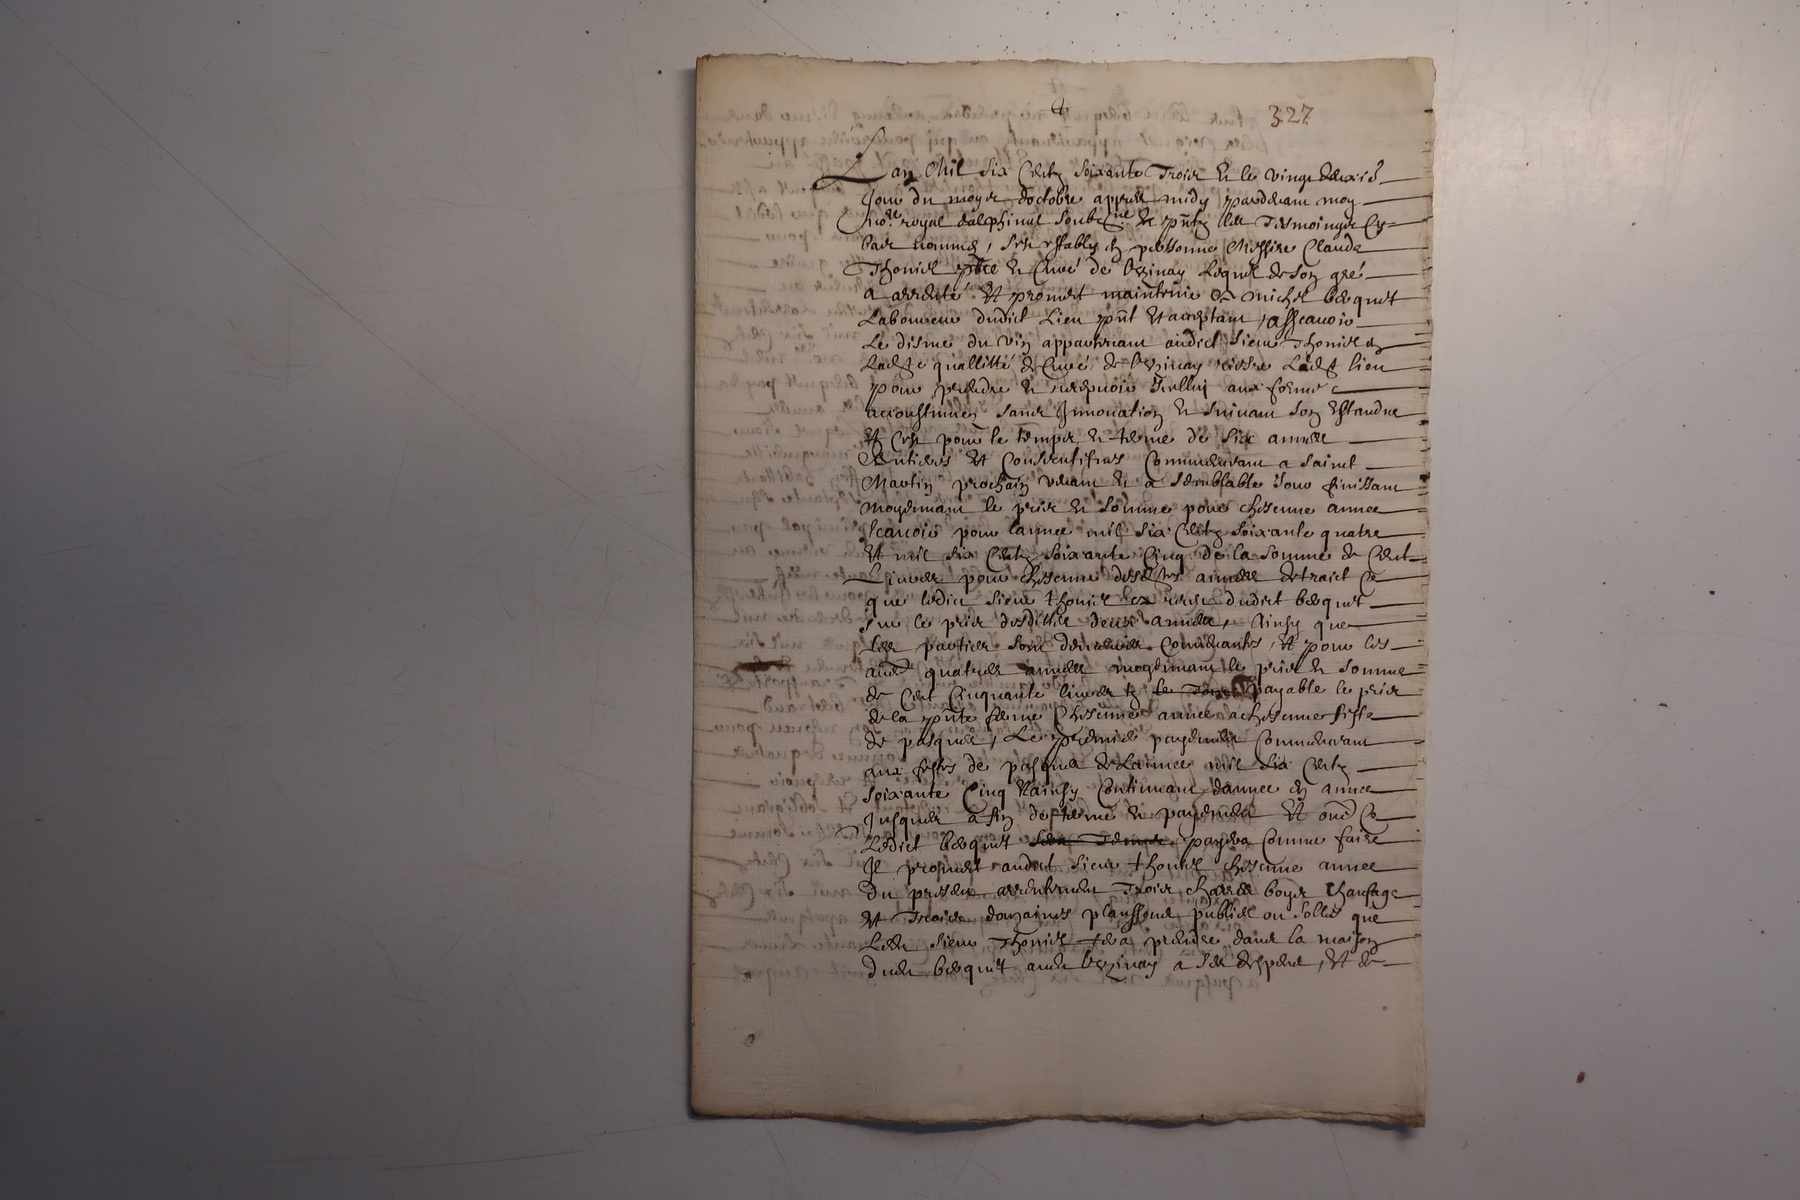 327
Lan Mil six Centz soixante Trois et le vingt deuxie
Jour du moys doctobre appres midy pardevant moy
no.re royal dalphinal soubz.ne et pntz les Tesmoingz cy
bas nommes, sest estably en personne Messire Claude
Thonier pbre et Curé de Vezinay Lequel de son gré
a arrenté et promect maintenir a michel becquet
Laboureur dudict Lieu pnt et acceptant, assavoir
Le disme du vin appartenant audict sieur Thonier en
quallitté de Curé de Vezinay riere lieu
pour prendre et recepvoir Icelluy aux formes
accoustumees sans Innovation et suivant son Estandue
Et cest pour le temps et terme de six annees
Entieres et Consecutifves Commencant a sainct
Martin prochain venant et a semblable Jour finissant
moyennant le prix et somme pour chascune annee
scavoir pour lannee mil six Centz soixante quatre
et mil six Centz soixante Cinq de la somme de Cent
Livres pour chascune desdites annees
que ledict sieur thonier dudict becquet
sur le prix desdittes deux annees, Ainsy que
Les parties sont Convenants, et pour les
aues quatres annees moyennant le prix et somme
de Cent Cinquante livres payable le prix
de la pnte ferme Chascune annee a chascune feste
de pasques, Le premier payement Commencant
aux festes de pasques de Lannee mil six Centz
soixante Cinq Et ainsy Continuant dannee en annee
Jusques a fin de ferme et payement Et
Ledict becquet payera Comme faire
Il promect audict sieur thonier chascune annee
Du present arrentement Trois charres boys Chaufage
Et Treize douzaines
Ledit sieur Thonier prendre dans la maison
Dudit becquet audit Vezinay a ses despens, Et de